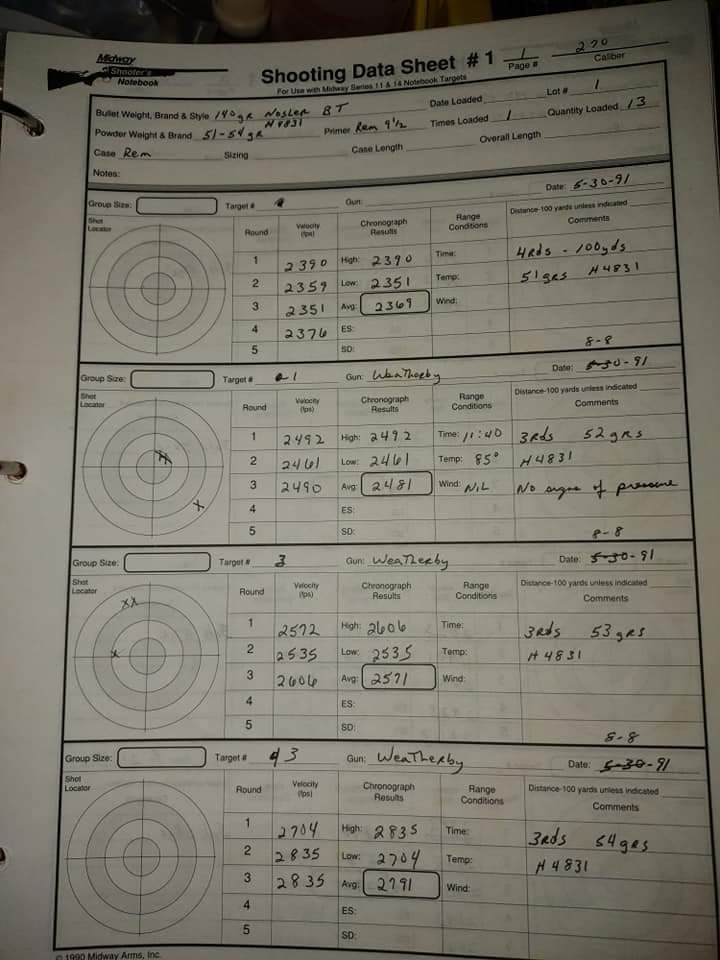 Midway
Shooter's
Notebook
Shooting Data Sheet # 1
For Use with Midway Series 11 & 14 Notebook Targets
1
Page #
270
Caliber
Bullet Weight, Brand & Style 140gr Nosler BT
Date Loaded
Lot # 1
Powder Weight & Brand 51-54gr H4831
Primer Rem 9½
Times Loaded 1
Quantity Loaded 13
Case Rem
Sizing
Case Length
Overall Length
Notes:
Group Size:
Target #
Gun:
Date: 5-30-91
Shot Locator
Round
Velocity (fps)
Chronograph Results
Range Conditions
Distance-100 yards unless indicated
Comments
1 2390 High: 2390 Time: 4Rds - 100yds
2 2359 Low: 2351 Temp: 51grs H4831
3 2351 Avg: 2369 Wind:
4 2376 ES:
5 SD:
8-8
Group Size:
Target # 1
Gun: Weatherby
Date: 5-30-91
Shot Locator
Round
Velocity (fps)
Chronograph Results
Range Conditions
Distance-100 yards unless indicated
Comments
1 2492 High: 2492 Time: 11:40 3Rds 52grs
2 2461 Low: 2461 Temp: 85° H4831
3 2490 Avg: 2481 Wind: NIL No signs of pressure
4 ES:
5 SD:
8-8
Group Size:
Target # 3
Gun: Weatherby
Date: 5-30-91
Shot Locator
Round
Velocity (fps)
Chronograph Results
Range Conditions
Distance-100 yards unless indicated
Comments
1 2572 High: 2606 Time: 3Rds 53grs
2 2535 Low: 2535 Temp: H4831
3 2606 Avg: 2571 Wind:
4 ES:
5 SD:
8-8
Group Size:
Target # 3
Gun: Weatherby
Date: 5-30-91
Shot Locator
Round
Velocity (fps)
Chronograph Results
Range Conditions
Distance-100 yards unless indicated
Comments
1 2704 High: 2835 Time: 3Rds 54grs
2 2835 Low: 2704 Temp: H4831
3 2835 Avg: 2791 Wind:
4 ES:
5 SD:
© 1990 Midway Arms, Inc.